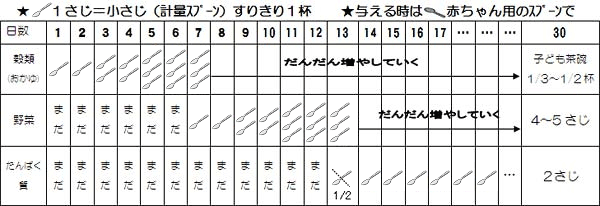 ★ 1さじ=小さじ(計量ｽﾌﾟｰﾝ)すりきり1杯 ★与える時は 赤ちゃん用のｽﾌﾟｰﾝで
日数 1 2 3 4 5 6 7 8 9 10 11 12 13 14 15 16 17 … … 30
穀類 (おかゆ) だんだん増やしていく 子ども茶碗 1/3～1/2杯
野菜 まだ まだ まだ まだ まだ まだ だんだん増やしていく 4～5さじ
たんぱく質 まだ まだ まだ まだ まだ まだ まだ まだ まだ まだ まだ まだ 1/2 … 2さじ